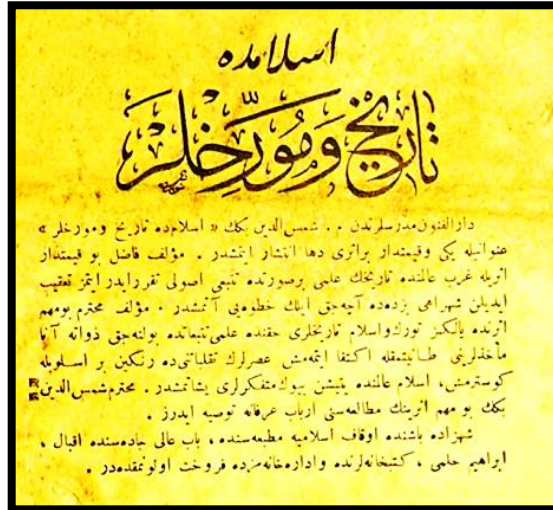 اسلامده
تاریخ و مورّخلر
دارالفنون مدرسلرندن م. شمس‌الدین بكك « اسلامده تاریخ ومورخلر »
عنوانیله یكی وقیمتدار براثری دها انتشار ایتمشدر . مؤلف فاضل بو قیمتدار
اثریله غرب عالمنده تاریخك علمی برصورتده تتبعی اصولی تقررایدر ایتمز تعقیب
ایدیلن شهراهی بزده‌ده آچه‌جق ایلك خطوه‌یی آتمشدر . مؤلف محترم بومهم
اثرنده یالكز تورك واسلام تاریخلری حقنده علمی تتبعاتده بولنه‌جق ذواته آنا
مأخذلرینی طانیتمقله اكتفا ایتمه‌مش عصرلرك تقلباتنی‌ده رنكین بر اسلوبله
كوسترمش، اسلام عالمنده یتیشن بیوك متفكرلری یشاتمشدر . محترم شمس‌الدین
بكك بو مهم اثرینك مطالعه‌سنی ارباب عرفانه توصیه ایدرز .
شهزاده باشنده اوقاف اسلامیه مطبعه‌سنده ، باب عالی جاده‌سنده اقبال ،
ابراهیم حلمی ، كتبخانه‌لرنده واداره‌خانه‌مزده فروخت اولونمقده‌در .